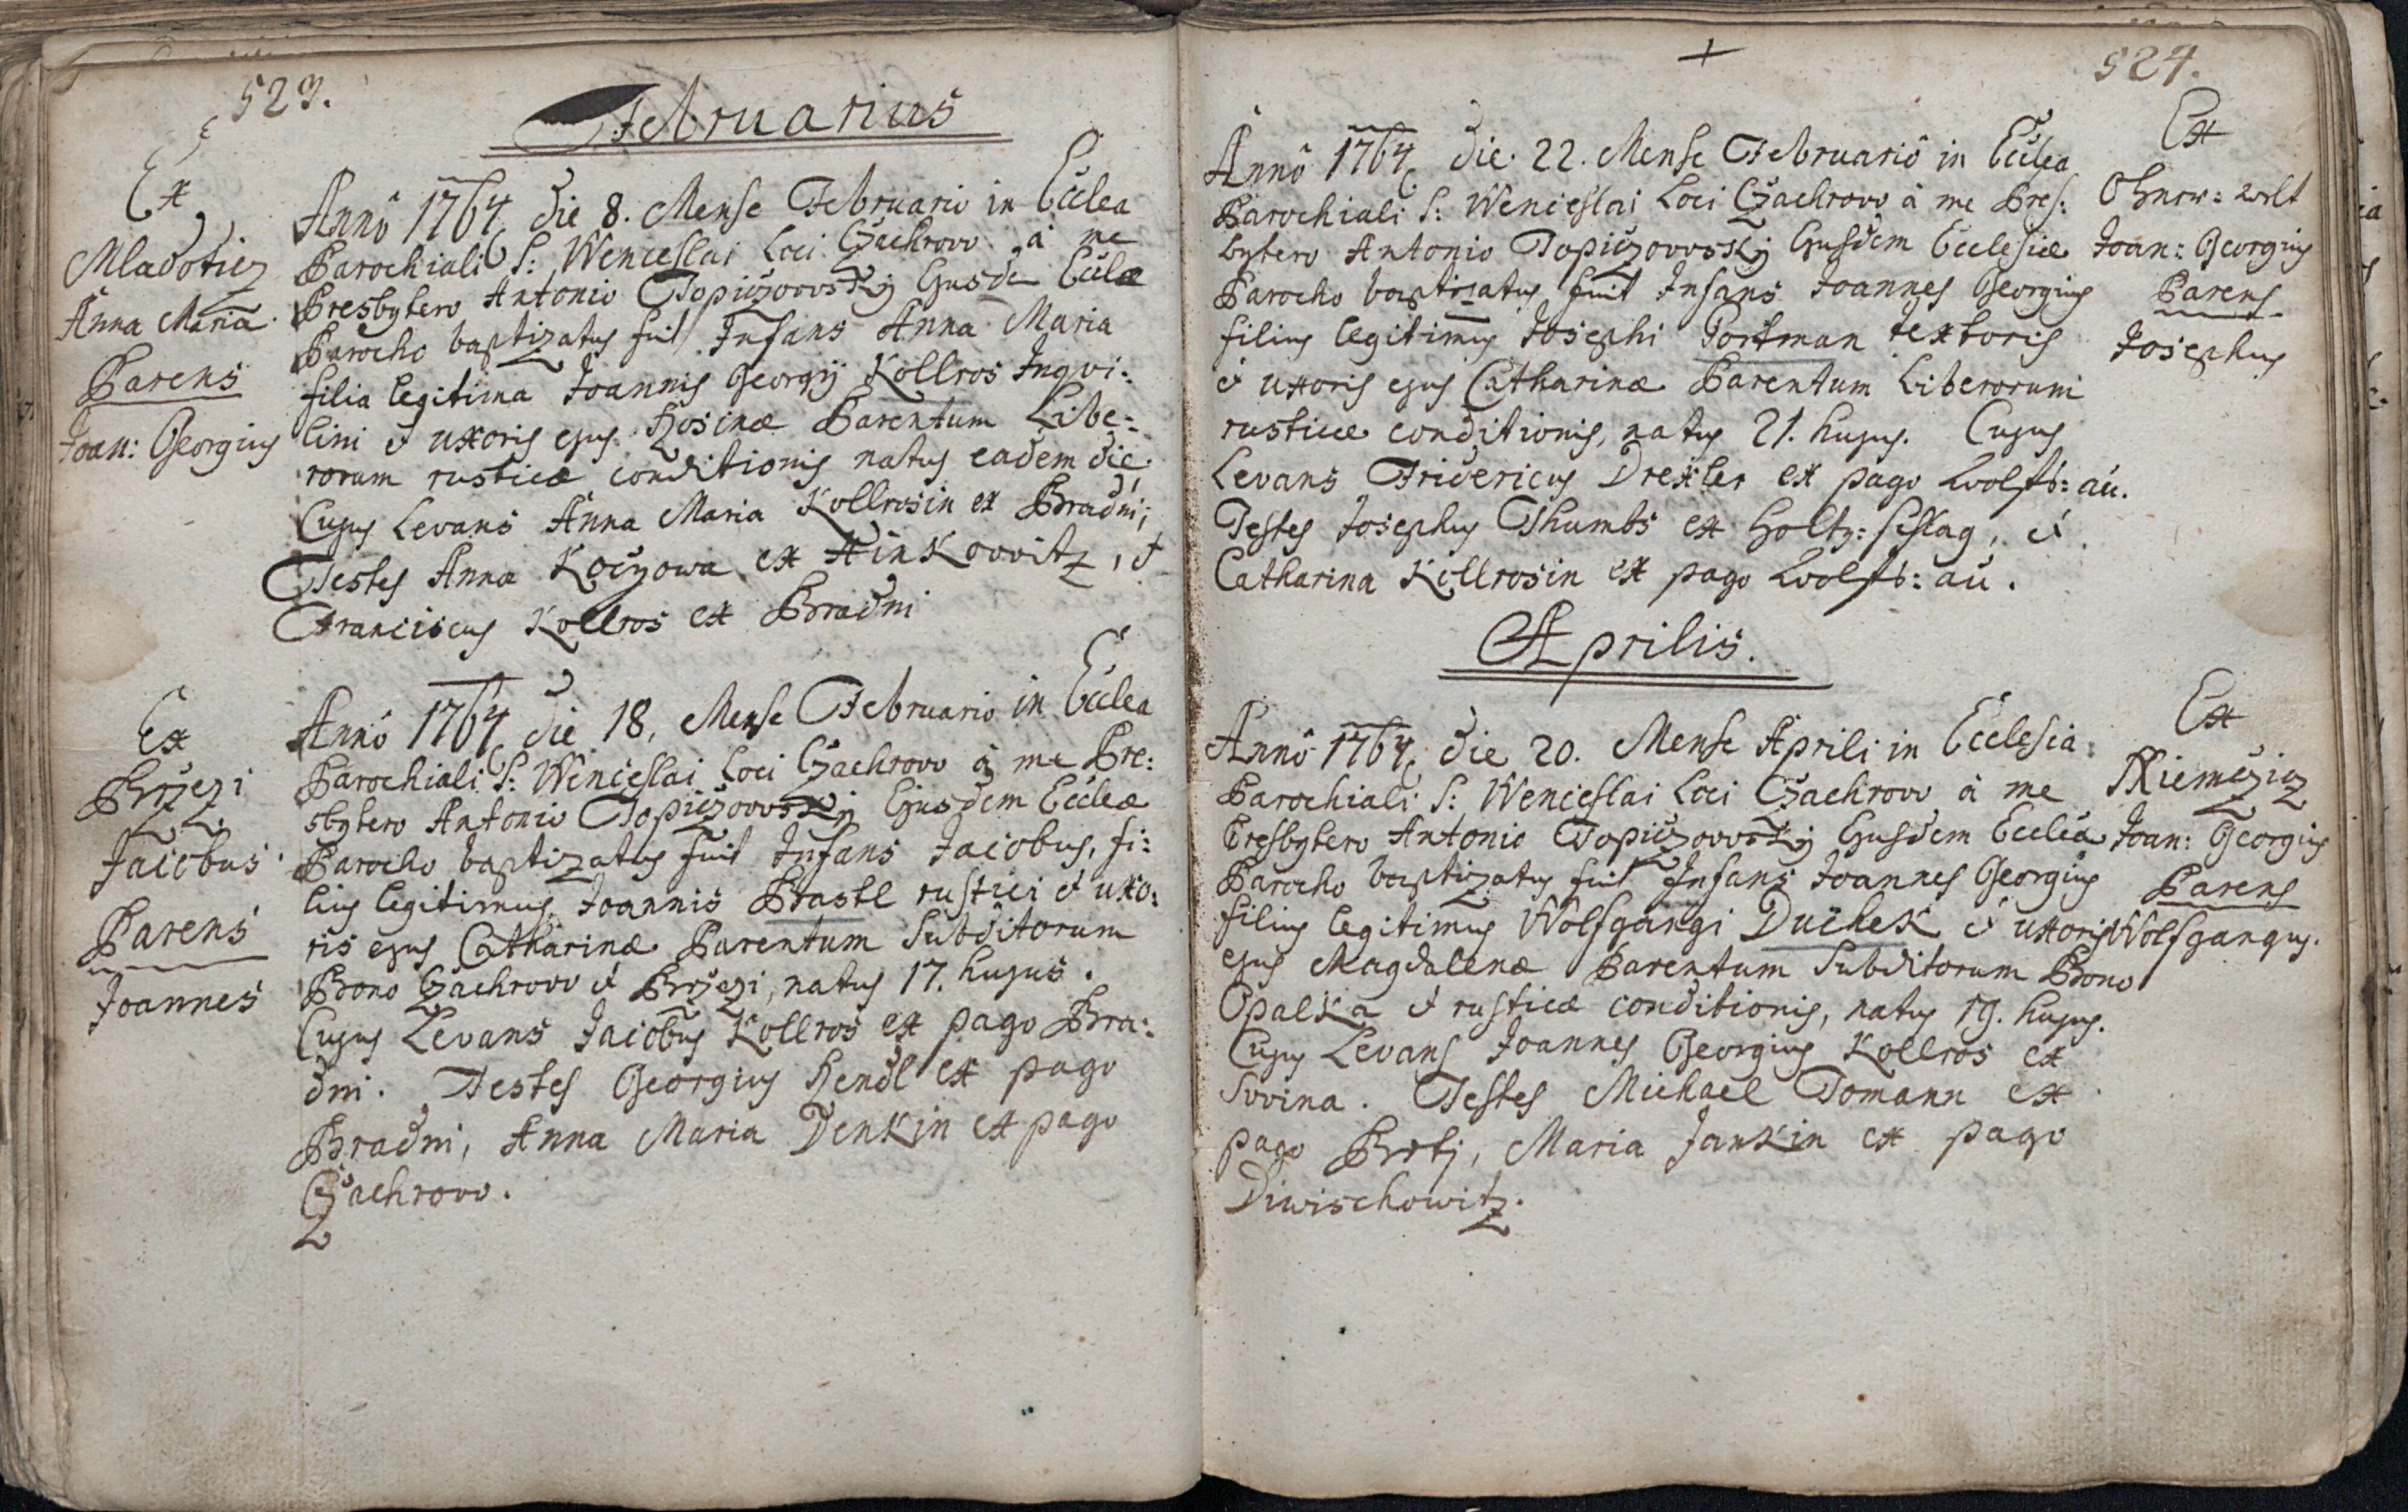 523.
Februarius
Ex
Mladoticz
Anna Maria.
Parens
Joan: Georgius
Annô 1764 die 8. Mense Februario in Ecclea
Parochiali S: Wenceslai Loci Czachrow à me
Presbytero Antonio Topiczowskÿ Ejusde Ecclæ
Parocho baptizatus fuit Infans Anna Maria
filia legitima Joannis Georgÿ Kollros Inqvi:
lini et uxoris ejus Rosinæ Parentum Libe:
rorum rusticæ conditionis natus eadem die.
Cujus Levans Anna Maria Kollrosin ex Bradni,
Testes Anna Kocyowa ex Hinkovvitz, et
Franciscus Kollros ex Bradni
Ex
Brzezi
Jacobus.
Parens
Joannes
Annô 1764 die 18. Mense Februario in Ecclea
Parochiali S: Wenceslai Loci Czachrow à me Pre:
sbytero Antonio Topiczowskÿ Ejusdem Eccleæ
Parocho baptizatus fuit Infans Jacobus, fi:
lius legitimus Joannis Prastl rustici et uxo:
ris ejus Catharinæ Parentum Subditorum
Bono Czachrow et Brzezi, natus 17. hujus.
Cujus Levans Jacobus Kollros ex pago Bra:
dni. Testes Georgius Hendl ex pago
Bradni, Anna Maria Denkin ex pago
Czachrow.
524.
Annô 1764 die 22. Mense Februariô in Ecclea
Parochiali S: Wenceslai Loci Czachrow à me Pres:
bytero Antonio Topiczowskÿ Ejusdem Ecclesiæ
Parocho baptizatus fuit Infans Joannes Georgius
filius legitimus Josephi Portman textoris
et uxoris ejus Catharinæ Parentum Liberorum
rusticæ conditionis, natus 21. hujus. Cujus
Levans Fridericus Drexler ex pago Wolfs: aú.
Testes Josephus Thumbs ex Holtz: schlag, et
Catharina Kollrosin ex pago Wolfs: aú.
Ex
Ohner: welt
Joan: Georgius
Parens
Josephus
Aprilis.
Annô 1764 die 20. Mense Aprili in Ecclesia
Parochiali S: Wenceslai Loci Czachrow à me
Presbytero Antonio Topiczowskÿ Ejusdem Ecclea
Parocho baptizatus fuit Infans Joannes Georgius
filius legitimus Wolfgangi Duchek et uxoris
ejus Magdalenæ Parentum Subditorum Bono
Opalka et rusticæ conditionis, natus 19. hujus.
Cujus Levans Joannes Georgius Kollros ex
Svvina. Testes Michael Tomann ex
pago Brtj, Maria Jankin ex pago
Diwischowitz.
Ex
Niemczicz
Joan: Georgius
Parens
Wolfgangus.